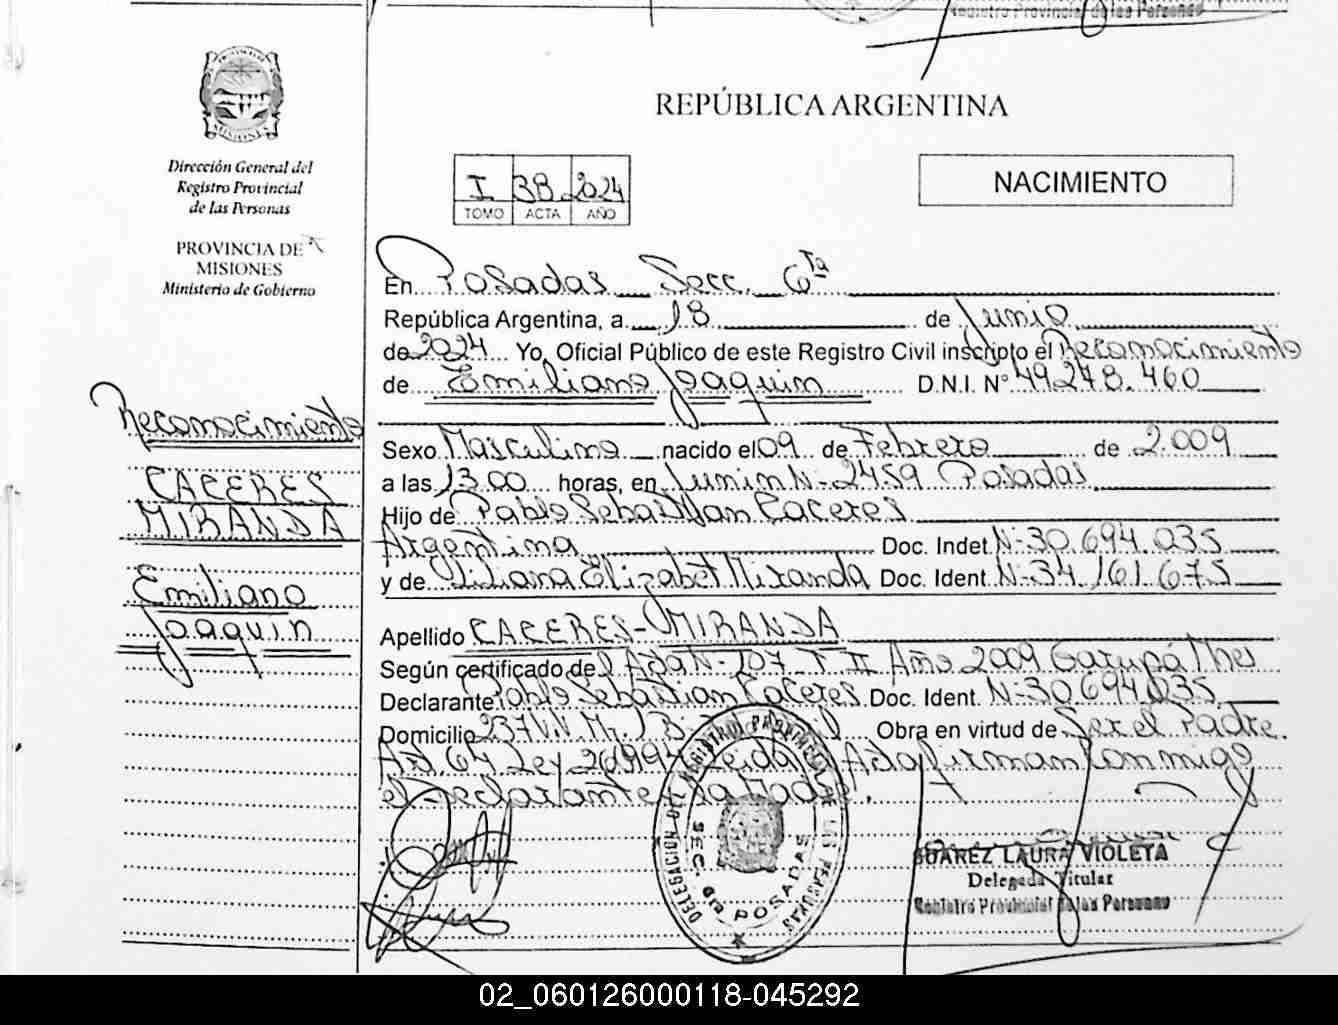 Registro Provincial de las Personas
Dirección General del
Registro Provincial
de las Personas
PROVINCIA DE
MISIONES
Ministerio de Gobierno
Reconocimiento
CACERES
MIRANDA
Emiliano
Joaquin
REPÚBLICA ARGENTINA
I 38 2024
TOMO ACTA AÑO
NACIMIENTO
En Posadas Secc. 6ta
República Argentina, a 18 de Junio
de 2024 Yo, Oficial Público de este Registro Civil inscripto el Reconocimiento
de Emiliano Joaquin D.N.I. N° 49.278.460
Sexo Masculino nacido el 09 de Febrero de 2.009
a las 13.00 horas, en Junin N- 2459 Posadas
Hijo de Pablo Sebastian Caceres
Argentina Doc. Indet N-30.694.035
y de Liliana Elizabet Miranda Doc. Ident. N-34.161.675
Apellido CACERES-MIRANDA
Según certificado del Acta N-107 T II Año 2009 Garupá Mnes
Declarante Pablo Sebastian Caceres Doc. Ident. N-30.694.035
Domicilio 237 Viv. Obra en virtud de Ser el Padre.
Art. 64 Ley 26994 Leida Acta firman conmigo
el Declarante La Madre.
DELEGACION DEL REGISTRO PROVINCIAL DE LAS PERSONAS
SEC. 6ta. POSADAS
SUAREZ LAURA VIOLETA
Delegada Titular
Registro Provincial de las Personas
02_060126000118-045292